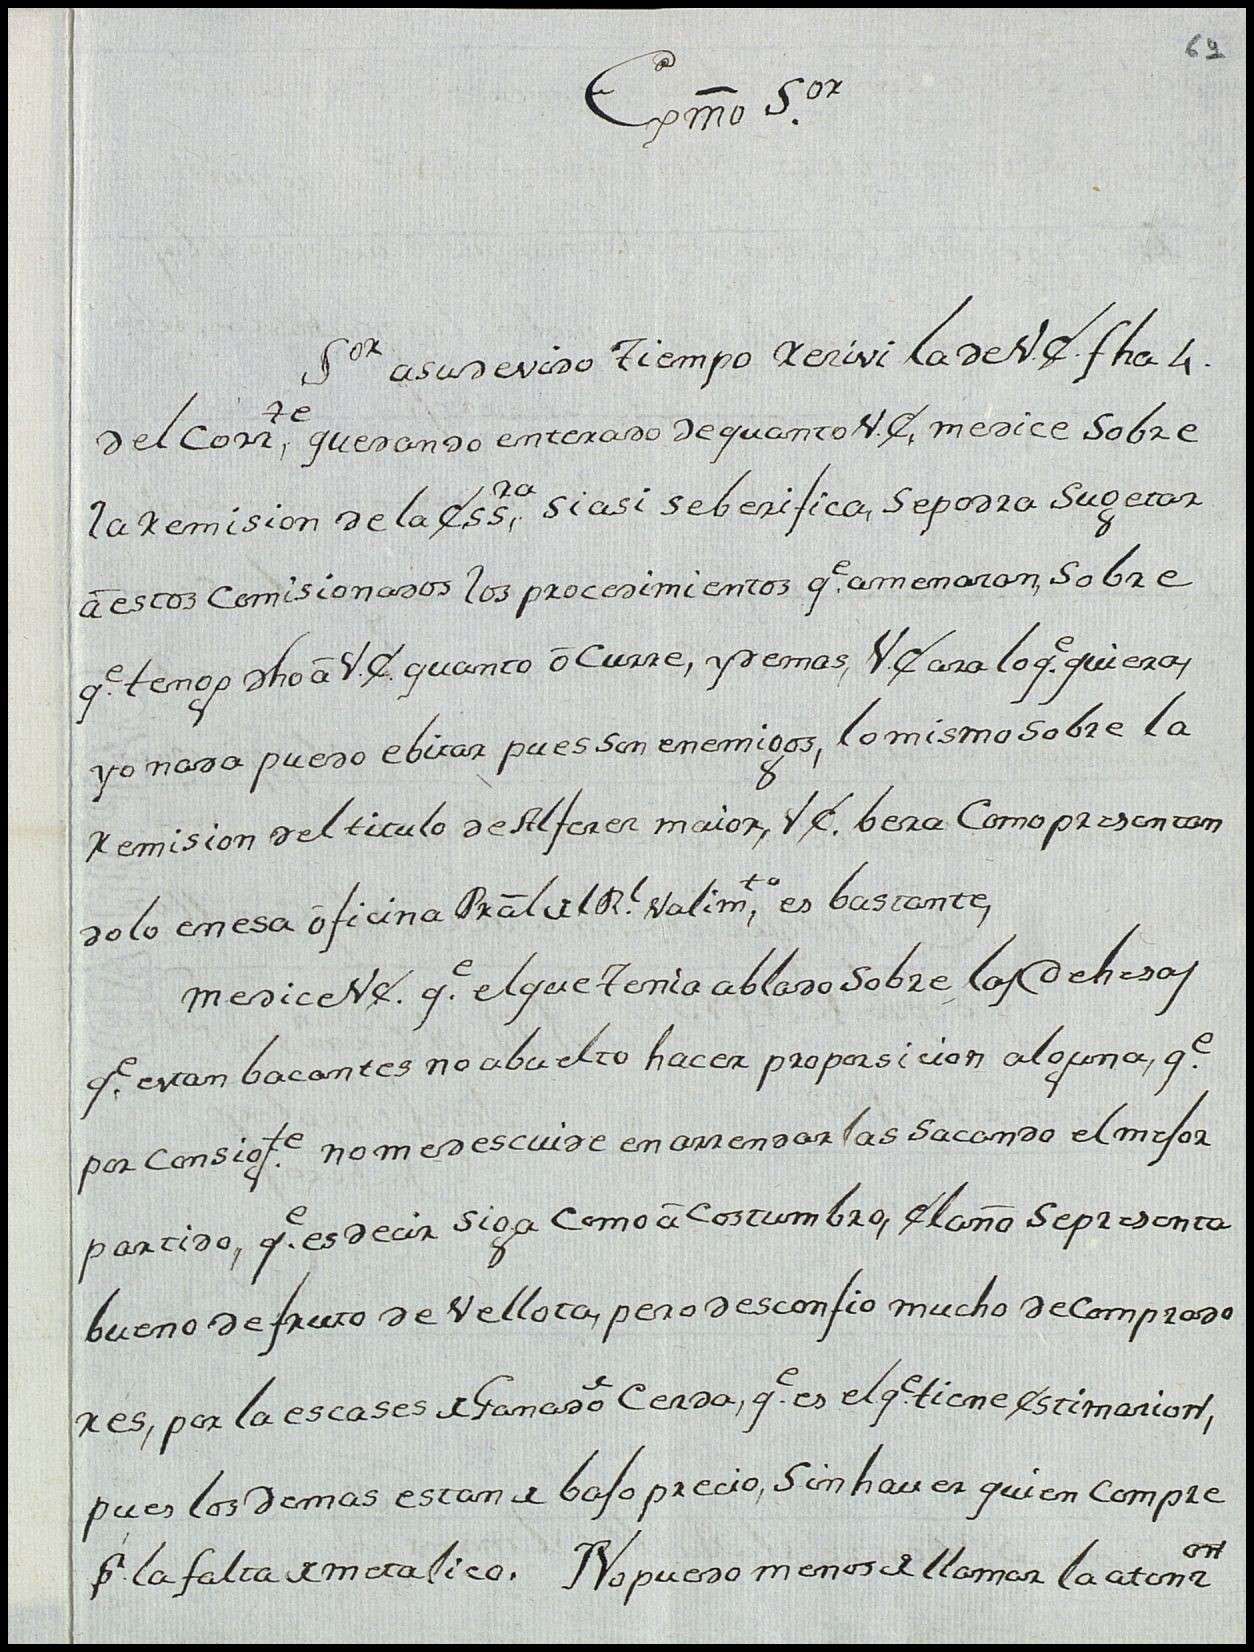 69
Exmō S.or
S.or asudevido tiempo recivi la de V.E. fha 4.
del Corr.te, quedando enterado de quanto V.E. medice sobre
la remision de la Ess.ra, si asi se berifica, sepodra sugetar
ā estos Comisionados los procedimientos q.e amenazan, sobre
q.e tengo dho ā V.E. quanto ōcurre, y demas, V.E. ara lo q.e quiera,
yo nada puedo ebitar pues son enemigos, lo mismo sobre la
remision del titulo de Alferez maior, V.E. bera Como presentan
dolo en esa ōficina Prāl del R.l Valim.to, es bastante,
medice V.E. q.e el que tenia ablado sobre las Dehesas
q.e estan bacantes no abuelto hacer proporsicion alguna, q.e
por Consig.te no medescuide en arrendarlas sacando el mejor
partido, q.e es decir siga Como ā Costumbro, El año Sepresenta
bueno de fruto de Vellota, pero desconfio mucho de Comprado
res, por la escases de Ganado de Cerda, q.e es el q.e tiene Estimacion,
pues los demas estan de bajo precio, sin haver quien Compre
p.r la falta de metalico. No puedo menos de llamar la atenz.on